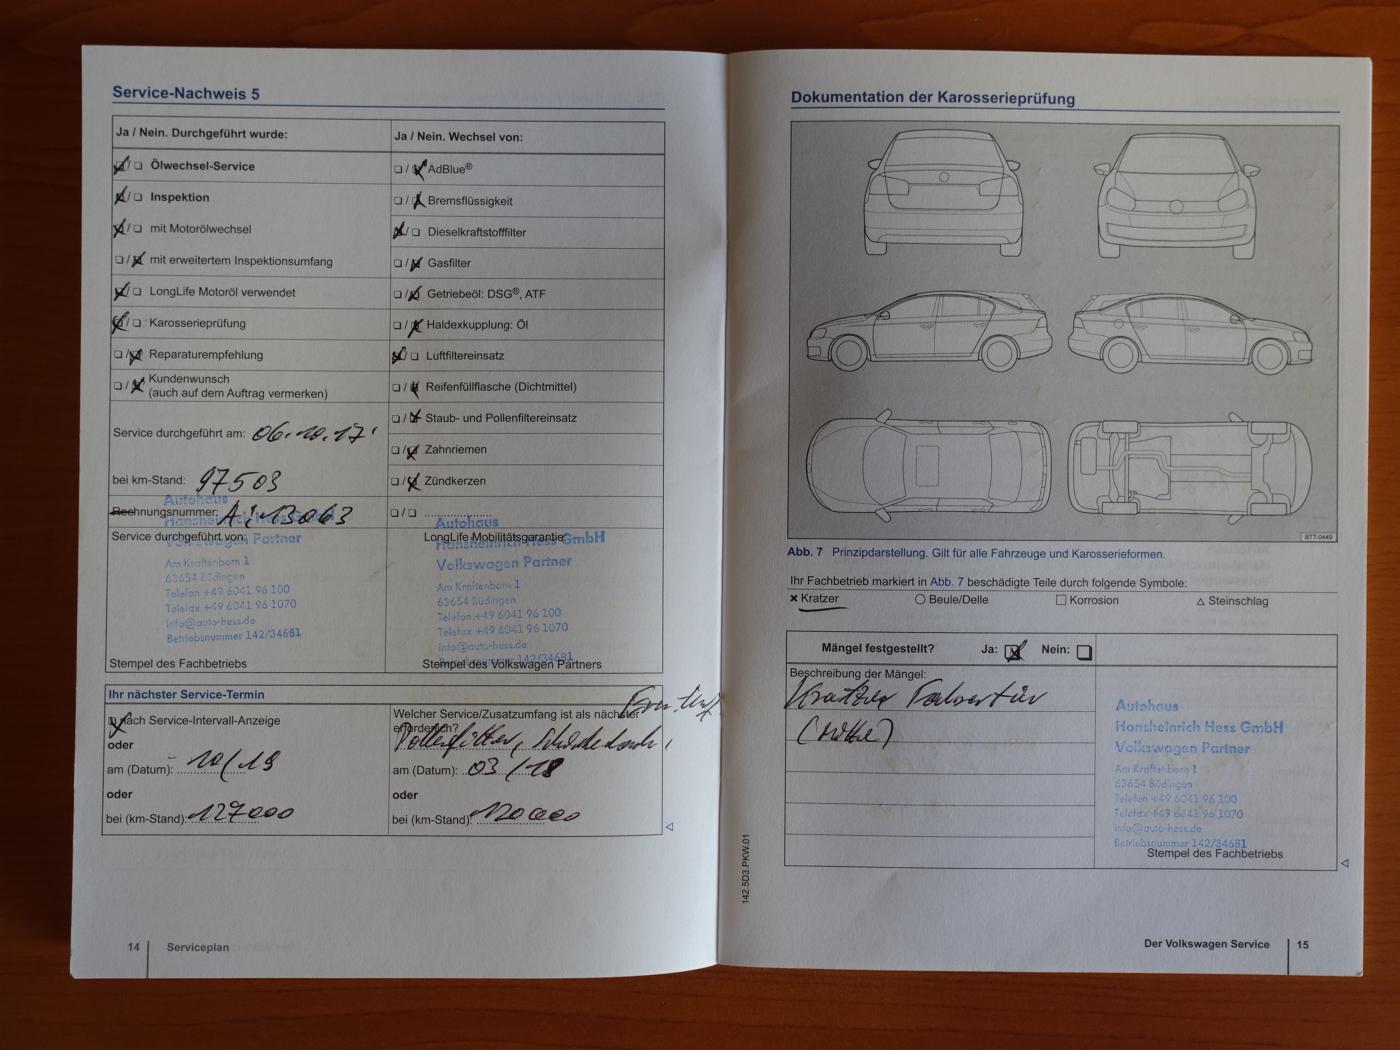 Service-Nachweis 5
Ja / Nein. Durchgeführt wurde:
Ölwechsel-Service
Inspektion
mit Motorölwechsel
mit erweitertem Inspektionsumfang
LongLife Motoröl verwendet
Karosserieprüfung
Reparaturempfehlung
Kundenwunsch
(auch auf dem Auftrag vermerken)
Service durchgeführt am: 06.10.17
bei km-Stand: 97503
Rechnungsnummer:
Service durchgeführt von:
Autohaus
Hansheinrich Hess GmbH
Volkswagen Partner
Am Kraftenborn 1
63654 Büdingen
Telefon +49 6041 96 100
Telefax +49 6041 96 1070
info@auto-hess.de
Betriebsnummer 142/34681
Stempel des Fachbetriebs
Ja / Nein. Wechsel von:
AdBlue®
Bremsflüssigkeit
Dieselkraftstofffilter
Gasfilter
Getriebeöl: DSG®, ATF
Haldexkupplung: Öl
Luftfiltereinsatz
Reifenfüllflasche (Dichtmittel)
Staub- und Pollenfiltereinsatz
Zahnriemen
Zündkerzen
LongLife Mobilitätsgarantie
Autohaus
Hansheinrich Hess GmbH
Volkswagen Partner
Am Kraftenborn 1
63654 Büdingen
Telefon +49 6041 96 100
Telefax +49 6041 96 1070
info@auto-hess.de
Betriebsnummer 142/34681
Stempel des Volkswagen Partners
Ihr nächster Service-Termin
nach Service-Intervall-Anzeige
oder
am (Datum): 10/19
oder
bei (km-Stand): 127000
Welcher Service/Zusatzumfang ist als nächster
erforderlich?
Pollenfilter,
am (Datum): 03/18
oder
bei (km-Stand): 120000
14 Serviceplan
Dokumentation der Karosserieprüfung
BTT-0449
Abb. 7 Prinzipdarstellung. Gilt für alle Fahrzeuge und Karosserieformen.
Ihr Fachbetrieb markiert in Abb. 7 beschädigte Teile durch folgende Symbole:
Kratzer Beule/Delle Korrosion Steinschlag
Mängel festgestellt? Ja: Nein:
Beschreibung der Mängel:
Kratzer Fahrertür
Autohaus
Hansheinrich Hess GmbH
Volkswagen Partner
Am Kraftenborn 1
63654 Büdingen
Telefon +49 6041 96 100
Telefax +49 6041 96 1070
info@auto-hess.de
Betriebsnummer 142/34681
Stempel des Fachbetriebs
142.5D3.PKW.01
Der Volkswagen Service 15